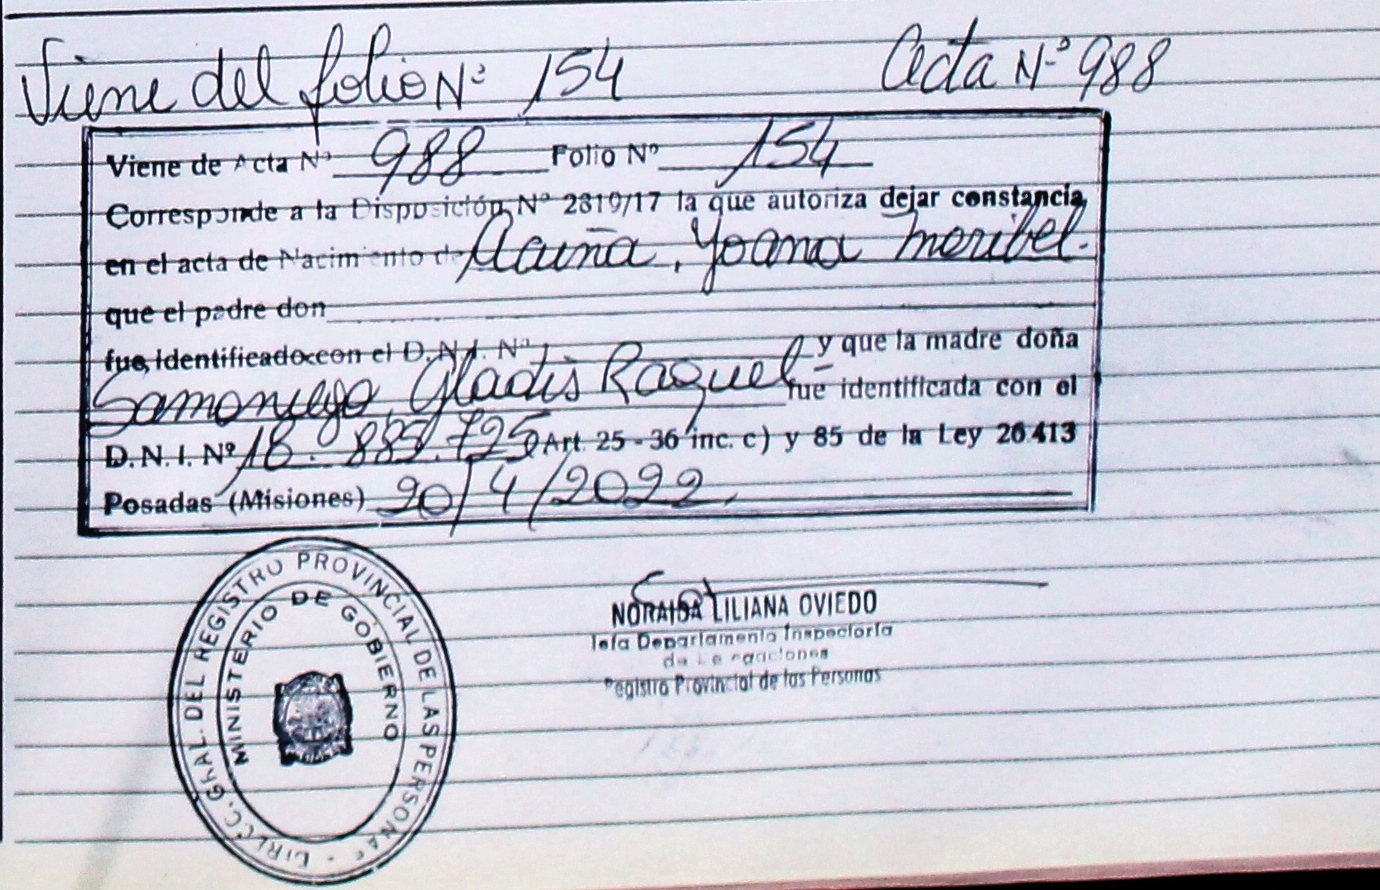 Viene del folio Nº 154 Acta Nº 988
Viene de Acta Nº 988 Folio Nº 154
Corresponde a la Disposición Nº 2819/17 la que autoriza dejar constancia
en el acta de Nacimiento de Acuña, Yoana Maribel.
que el padre don
fue identificado con el D.N.I. Nº y que la madre doña
Samaniego, Gladis Raquel fue identificada con el
D.N.I. Nº 16.889.725 Art. 25 - 36 inc. c) y 85 de la Ley 26.413
Posadas (Misiones) 20/4/2022.
DIRECC. GRAL. DEL REGISTRO PROVINCIAL DE LAS PERSONAS
MINISTERIO DE GOBIERNO
NORAIDA LILIANA OVIEDO
Jefa Departamento Inspectoría
de Delegaciones
Registro Provincial de las Personas